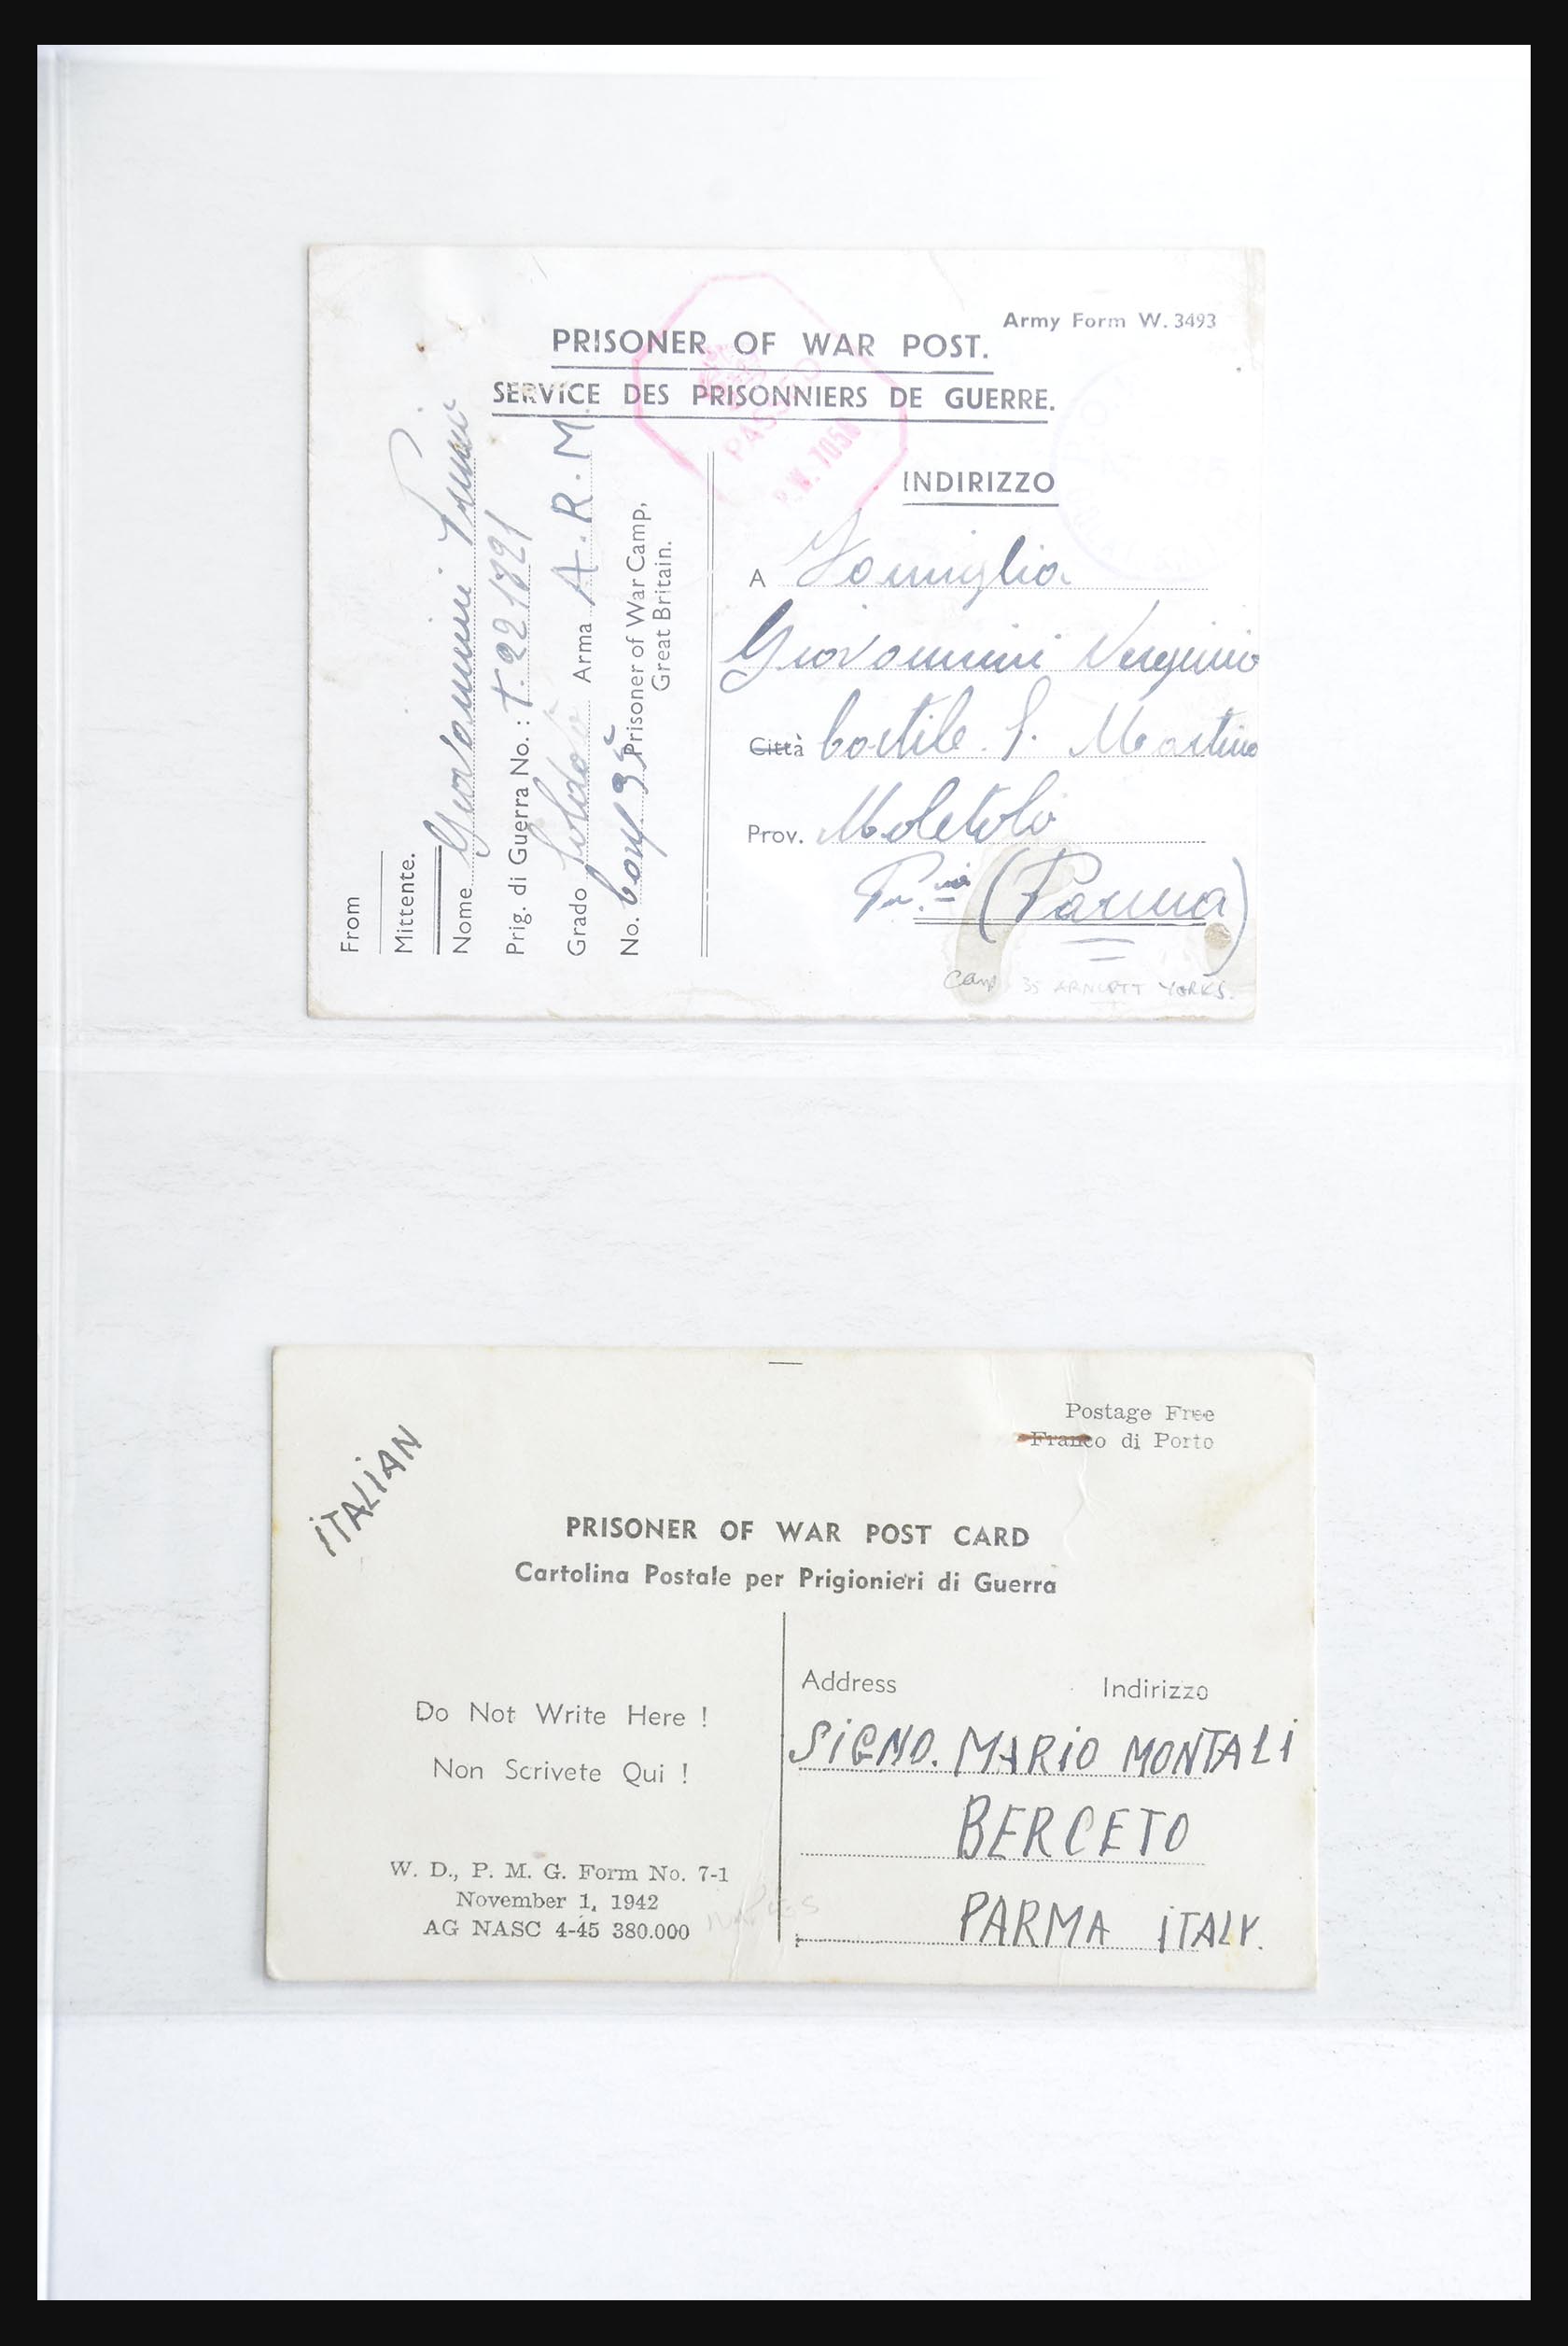 Army Form W. 3493
PRISONER OF WAR POST.
SERVICE DES PRISONNIERS DE GUERRE.
PASSED
P.W. 7056
From
Mittente.
Nome Giovannini
Prig. di Guerra No.: T. 221821
Grado Soldato Arma A.R.M.
No. Camp 35 Prisoner of War Camp,
Great Britain.
INDIRIZZO
A Famiglia
Giovannini Verginio
Città Cortile S. Martino
Prov. Moletolo
(Parma)
Camp 35 YORKS.
ITALIAN
Postage Free
Franco di Porto
PRISONER OF WAR POST CARD
Cartolina Postale per Prigionieri di Guerra
Do Not Write Here !
Non Scrivete Qui !
W. D., P. M. G. Form No. 7-1
November 1, 1942
AG NASC 4-45 380.000
Address Indirizzo
SIGNO. MARIO MONTALI
BERCETO
PARMA ITALY.